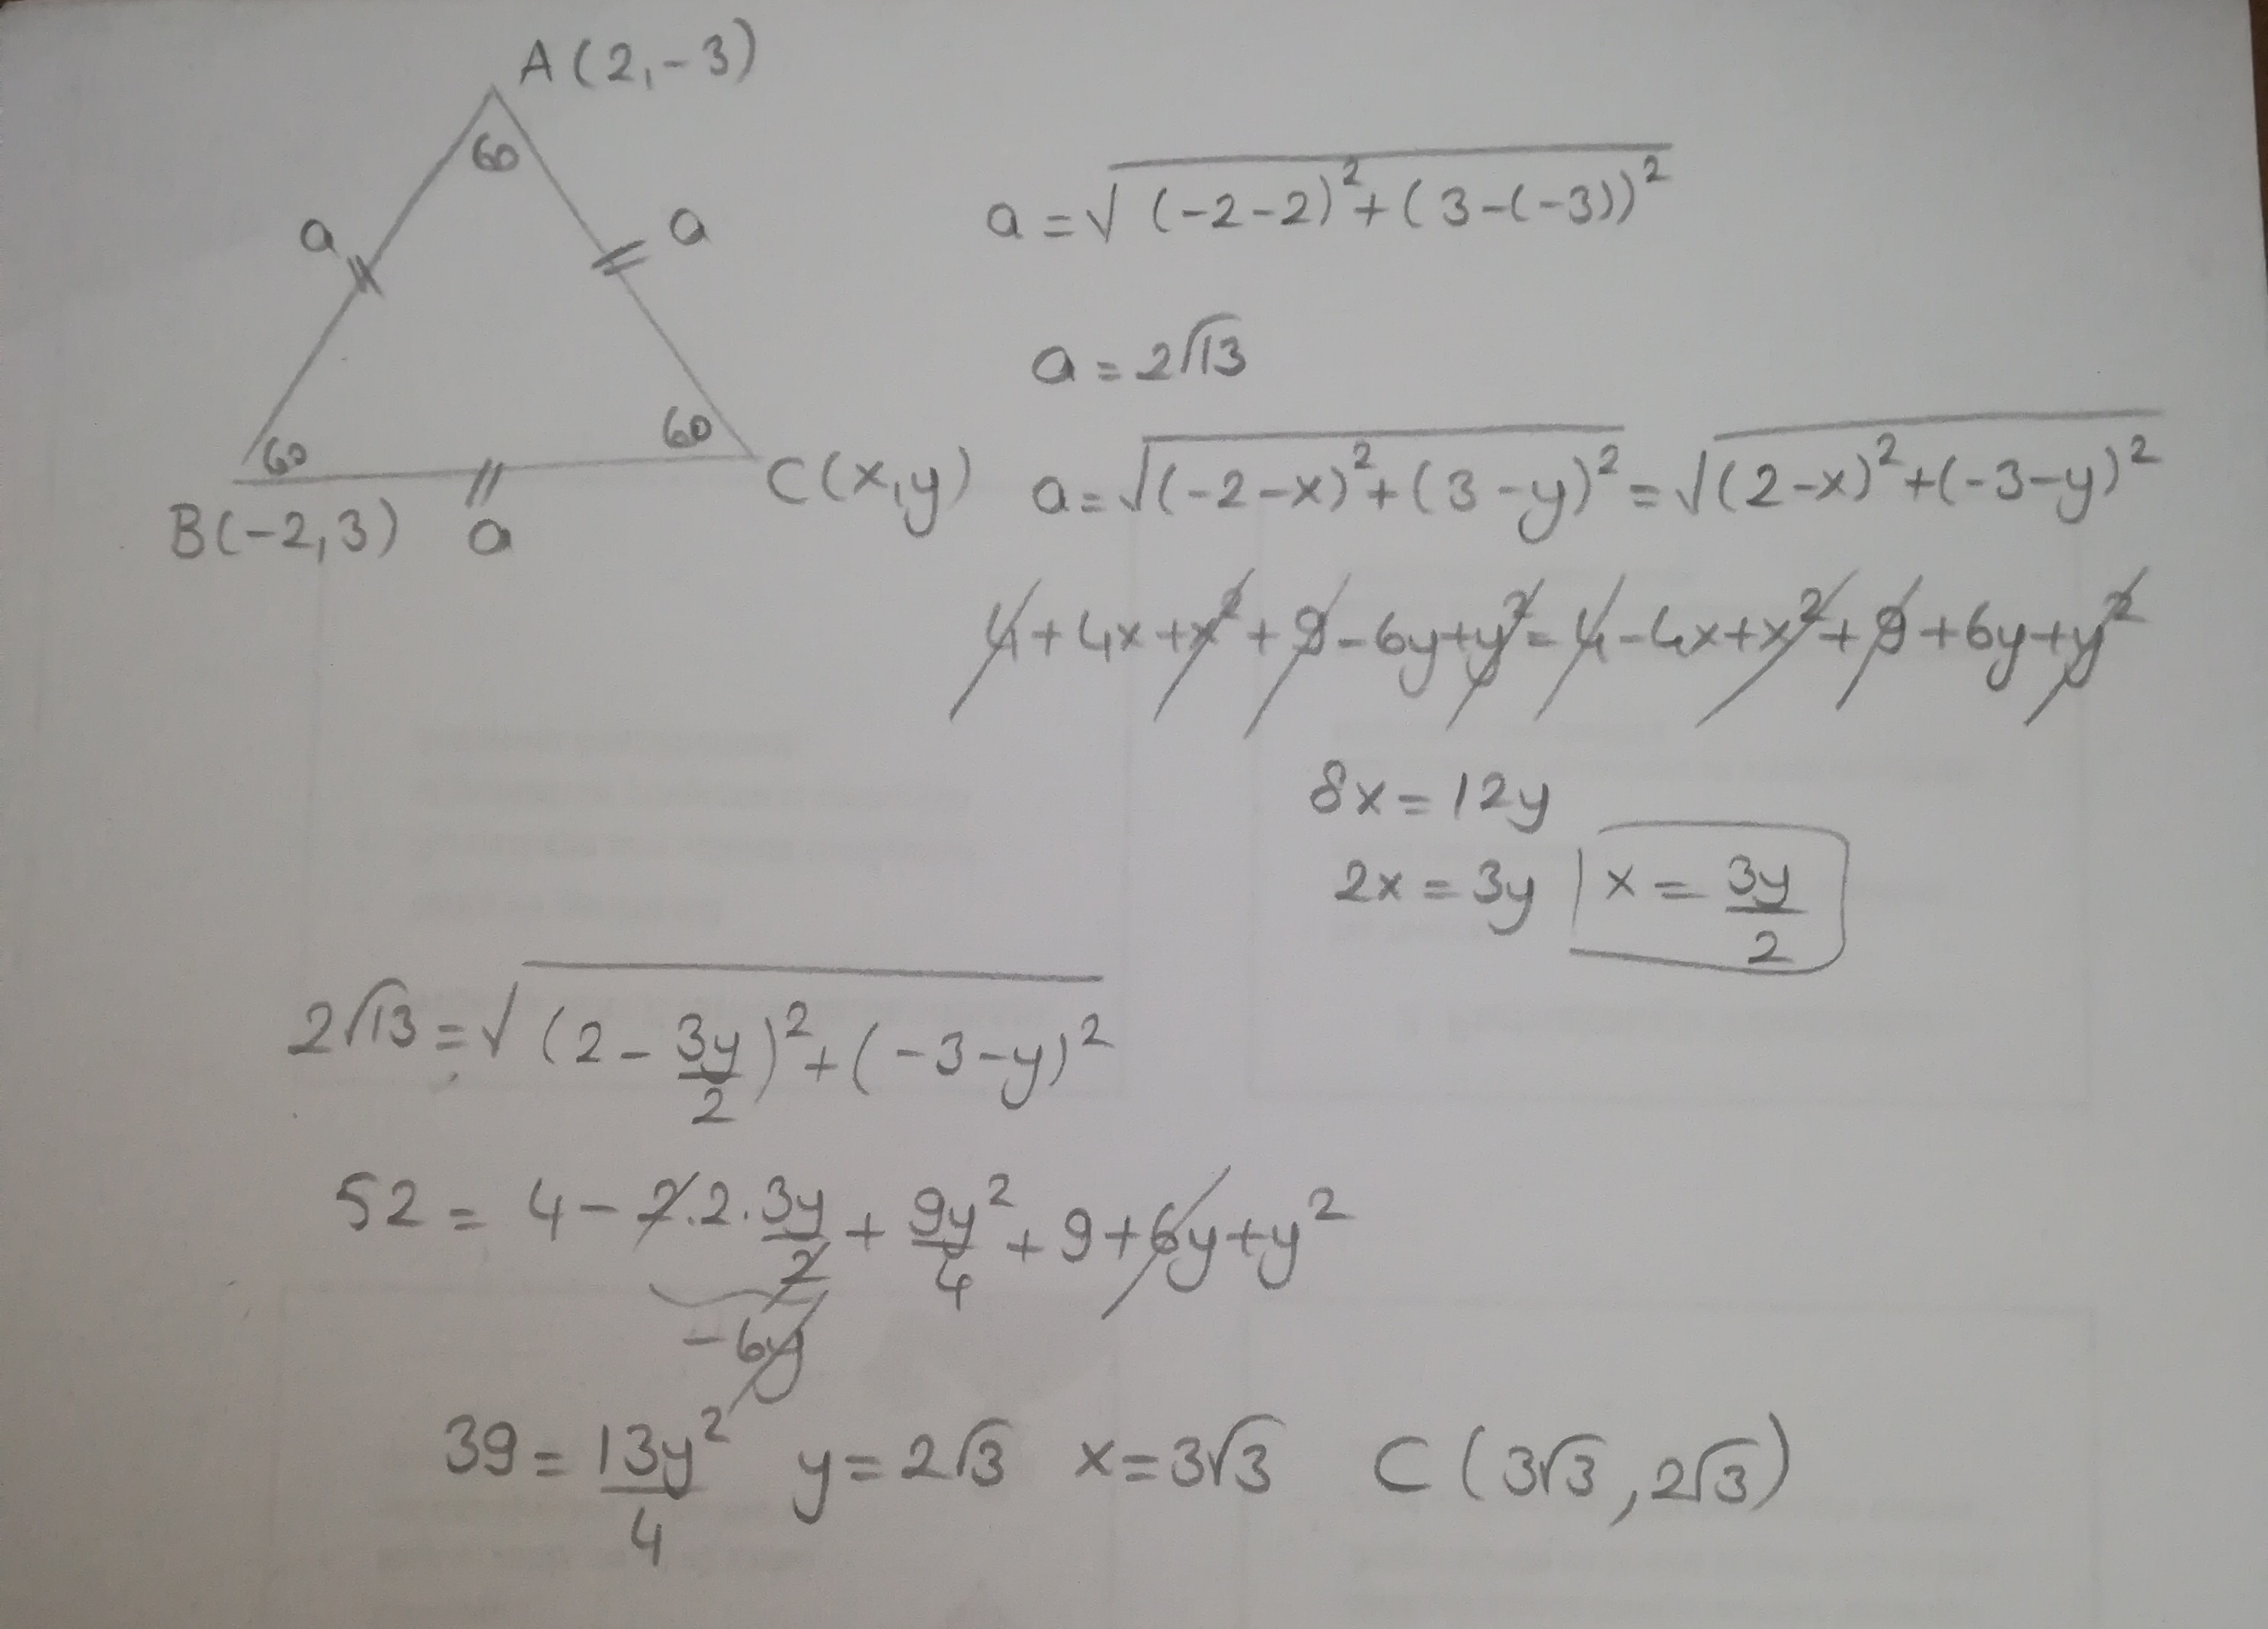 A(2,-3)
60
a
a
60
60
B(-2,3)
a
C(x,y)
a=√((-2-2)²+(3-(-3))²)
a=2√13
a=√((-2-x)²+(3-y)²)=√((2-x)²+(-3-y)²)
4+4x+x²+9-6y+y²=4-4x+x²+9+6y+y²
8x=12y
2x=3y | x=3y/2
2√13=√((2-3y/2)²+(-3-y)²)
52=4-2.2.3y/2+9y²/4+9+6y+y²
-6y
39=13y²/4 y=2√3 x=3√3 C(3√3,2√3)